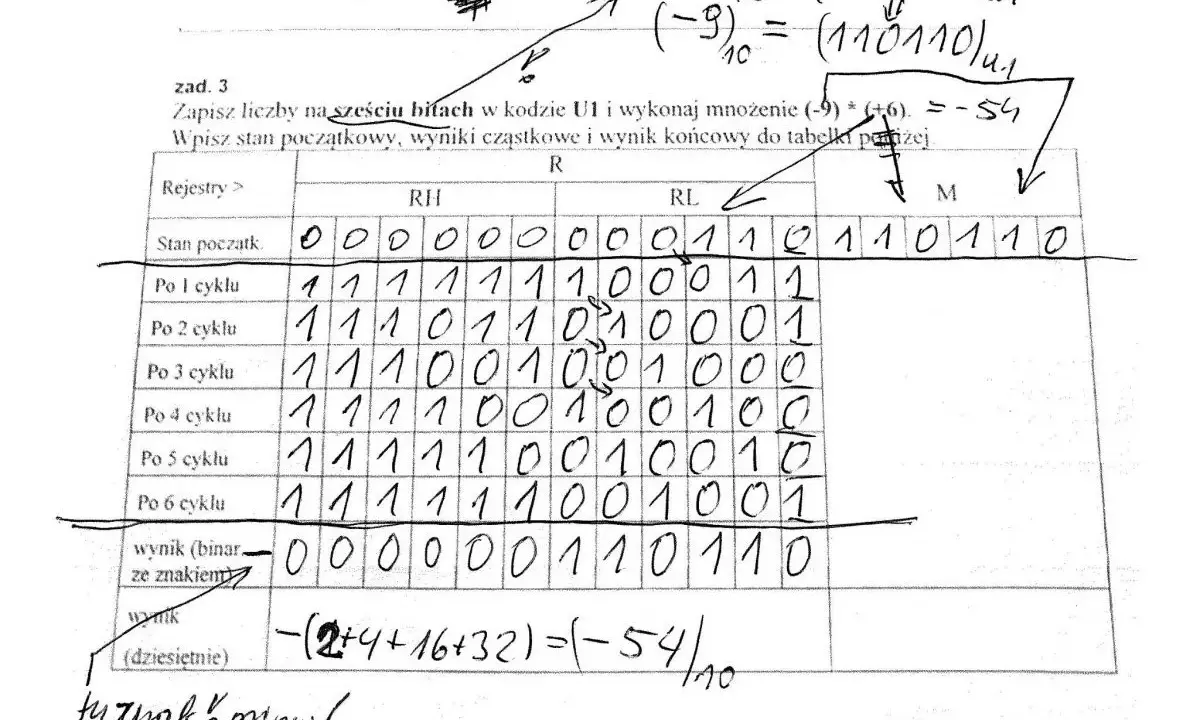 (-9)10 = (110110)U1
zad. 3
Zapisz liczby na sześciu bitach w kodzie U1 i wykonaj mnożenie (-9) * (+6). = -54
Wpisz stan początkowy, wyniki cząstkowe i wynik końcowy do tabelki poniżej
Rejestry > R
RH RL M
Stan początk. 0 0 0 0 0 0 0 0 0 1 1 0 1 1 0 1 1 0
Po 1 cyklu 1 1 1 1 1 1 1 0 0 0 1 1
Po 2 cyklu 1 1 1 0 1 1 0 1 0 0 0 1
Po 3 cyklu 1 1 1 0 0 1 0 0 1 0 0 0
Po 4 cyklu 1 1 1 1 0 0 1 0 0 1 0 0
Po 5 cyklu 1 1 1 1 1 0 0 1 0 0 1 0
Po 6 cyklu 1 1 1 1 1 1 0 0 1 0 0 1
wynik (binar. - 0 0 0 0 0 0 1 1 0 1 1 0
ze znakiem)
wynik
(dziesiętnie) -(2+4+16+32) = (-54)10